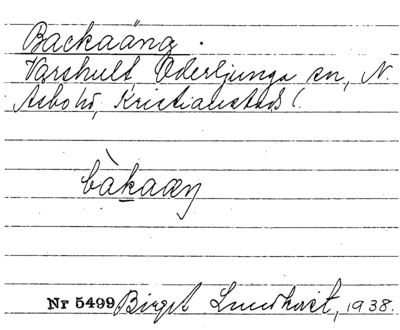 Backaäng.
Varshult Oderljunga sn, N.
Åsbo hd, Kristianstads l.
bàkaæŋ
Nr 5499 Birgit Lundkvist, 1938.